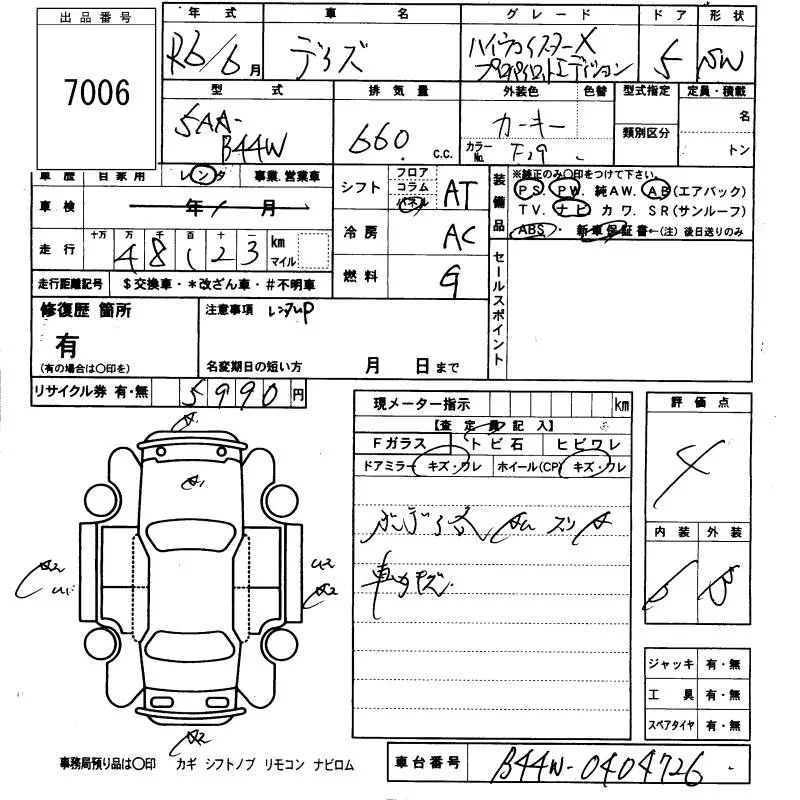 出品番号
7006
年式 車名 グレード ドア 形状
R6/6月 デイズ ハイウェイスターX プロパイロットエディション 5 5W
型式 排気量 外装色 色替 型式指定 定員・積載
5AA-B44W 660 c.c. カーキー カラーNo. F29 類別区分 名 トン
車歴 自家用 レンタ 事業.営業車
車検 年 月
走行 十万 万 千 百 十 一 km マイル
48123
走行距離記号 $交換車・*改ざん車・#不明車
シフト フロア コラム パネル AT
冷房 AC
燃料 G
装備品 ※純正のみ〇印をつけて下さい。
PS. PW. 純AW. AB(エアバック)
TV. ナビ カワ. SR(サンルーフ)
ABS・新車保証書←(注)後日送りのみ
セールスポイント
修復歴 箇所
有
(有の場合は〇印を)
注意事項 レンタUP
名変期日の短い方 月 日まで
リサイクル券 有・無 5990円
現メーター指示 km
【査定員記入】
Fガラス トビ石 ヒビワレ
ドアミラー キズ・ワレ ホイール(CP) キズ・ワレ
車カキズ
評価点
4
内装 外装
ジャッキ 有・無
工具 有・無
スペアタイヤ 有・無
A1
A2
U1
U2
A2
A2
事務局預り品は〇印 カギ シフトノブ リモコン ナビロム
車台番号 B44W-0404726